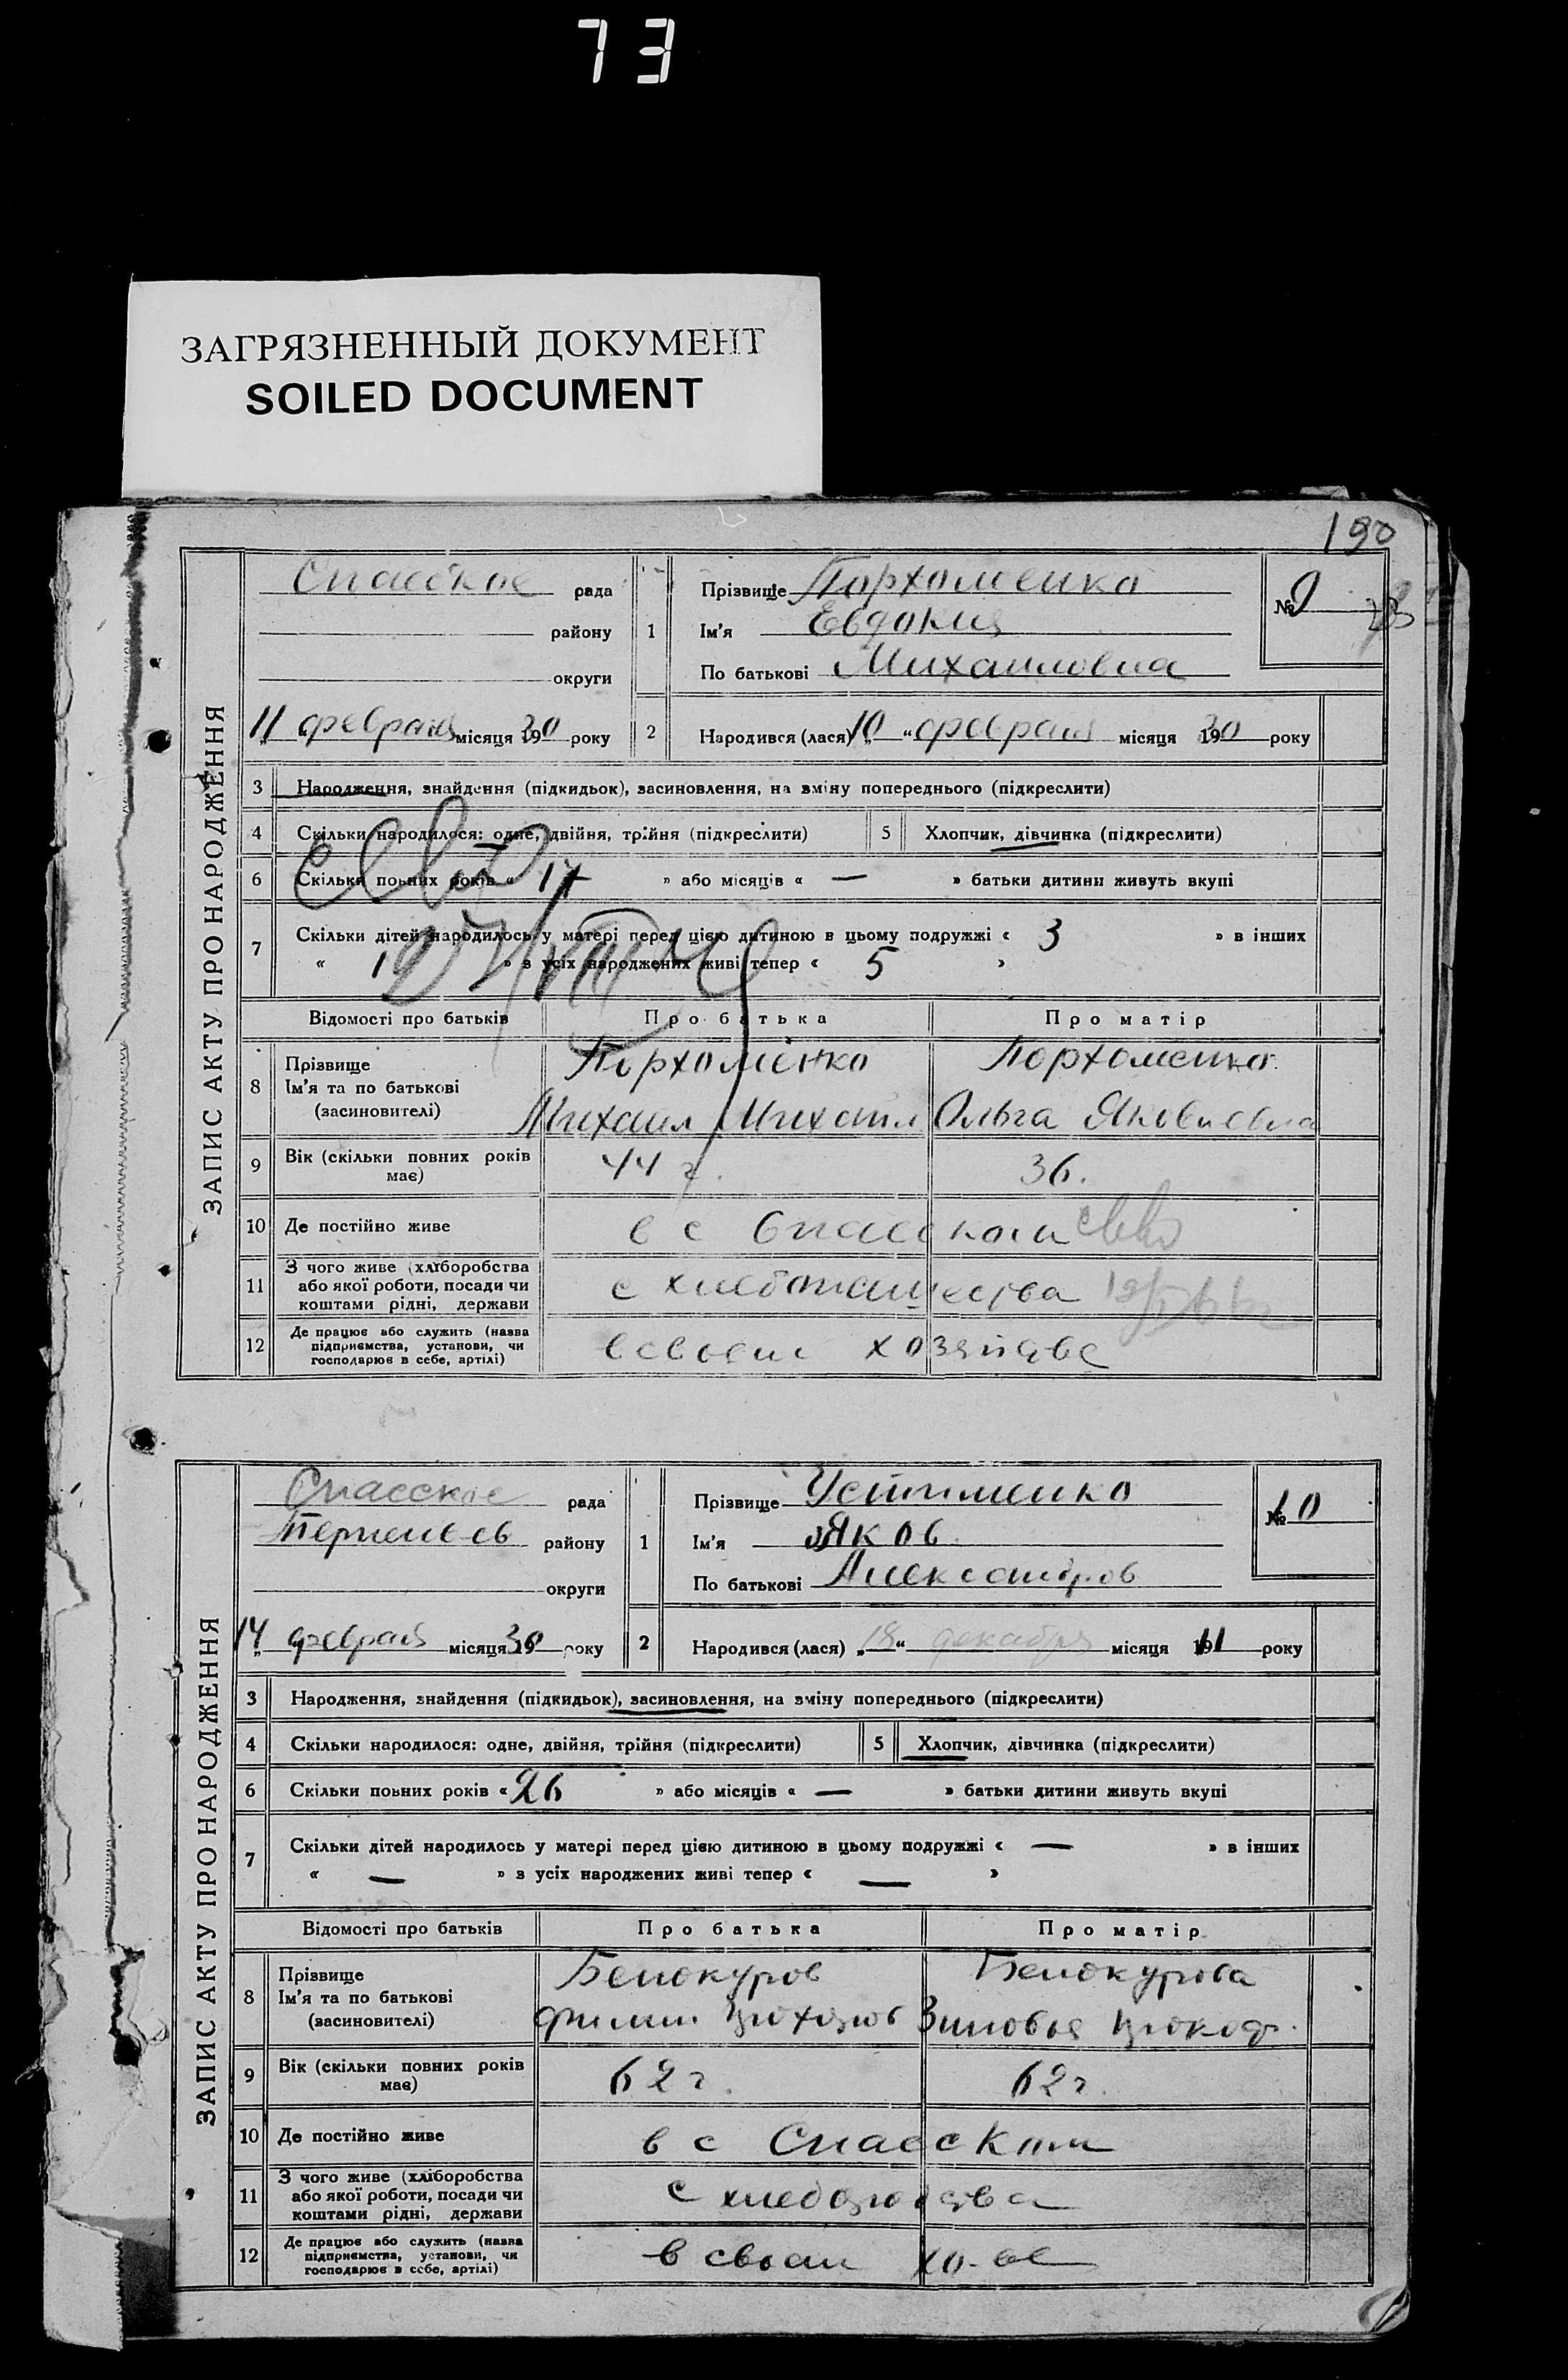 73
ЗАГРЯЗНЕННЫЙ ДОКУМЕНТ
SOILED DOCUMENT
190
ЗАПИС АКТУ ПРО НАРОДЖЕННЯ
Спасское рада
району
округи
11 февраля місяця 1930 року
1 Прізвище Пархоменко
Ім'я Евдокия
По батькові Михайловна
№ 9
2 Народився (лася) „10“ февраля місяця 1930 року
3 Народження, знайдення (підкидьок), засиновлення, на зміну попереднього (підкреслити)
4 Скільки народилося: одне, двійня, трійня (підкреслити) 5 Хлопчик, дівчинка (підкреслити)
6 Скільки повних років « 17 » або місяців « — » батьки дитини живуть вкупі
7 Скільки дітей народилось у матері перед цією дитиною в цьому подружжі « 3 » в інших
« » в усіх народжених живі тепер « 5 »
Відомості про батьків Про батька Про матір
8 Прізвище
Ім'я та по батькові
(засиновителі)
Пархоменко
Михаил Михаил
Пархоменко
Ольга Яковлевна
9 Вік (скільки повних років має) 44 г. 36.
10 Де постійно живе в с Спасском
11 З чого живе (хліборобства
або якої роботи, посади чи
коштами рідні, держави
с хлебопашества
12 Де працює або служить (назва
підприємства, установи, чи
господарює в себе, артілі)
в своем хозяйстве
ЗАПИС АКТУ ПРО НАРОДЖЕННЯ
Спасское рада
району
округи
14 февраля місяця 1930 року
1 Прізвище Устименко
Ім'я Яков
По батькові Александров
№ 10
2 Народився (лася) „18“ декабря місяця року
3 Народження, знайдення (підкидьок), засиновлення, на зміну попереднього (підкреслити)
4 Скільки народилося: одне, двійня, трійня (підкреслити) 5 Хлопчик, дівчинка (підкреслити)
6 Скільки повних років « 26 » або місяців « — » батьки дитини живуть вкупі
7 Скільки дітей народилось у матері перед цією дитиною в цьому подружжі « — » в інших
« — » в усіх народжених живі тепер « — »
Відомості про батьків Про батька Про матір
8 Прізвище
Ім'я та по батькові
(засиновителі)
Белокуров
Филип
Белокурова
Зиновья
9 Вік (скільки повних років має) 62 г. 62 г.
10 Де постійно живе в с Спасском
11 З чого живе (хліборобства
або якої роботи, посади чи
коштами рідні, держави
с
12 Де працює або служить (назва
підприємства, установи, чи
господарює в себе, артілі)
в своем хо-ве